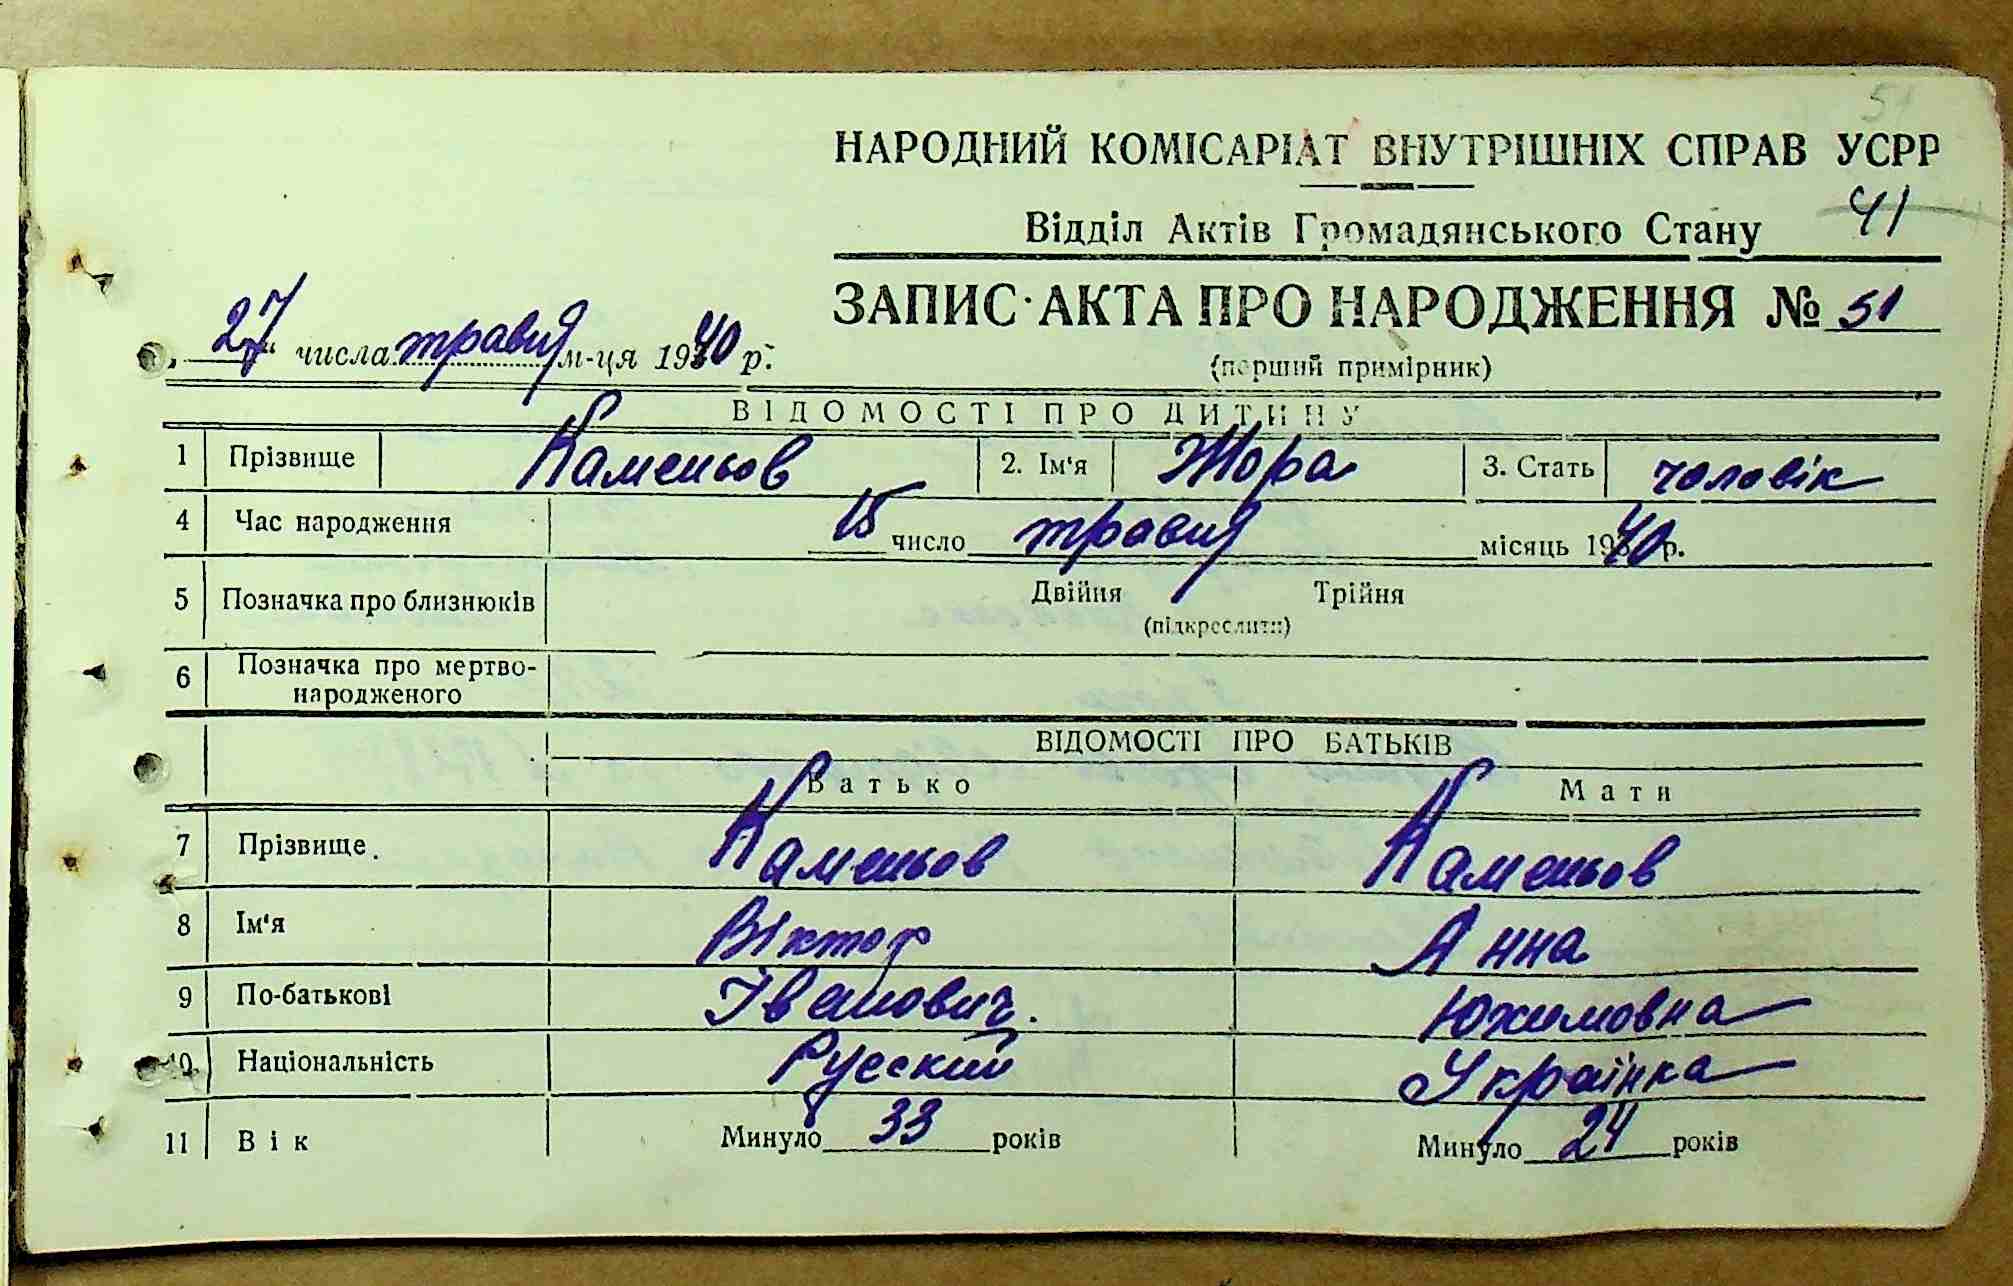 51
НАРОДНИЙ КОМІСАРІАТ ВНУТРІШНІХ СПРАВ УСРР
41
Відділ Актів Громадянського Стану
ЗАПИС АКТА ПРО НАРОДЖЕННЯ № 51
27 числа травня м-ця 1940 р.
(перший примірник)
ВІДОМОСТІ ПРО ДИТИНУ
1 Прізвище Каменьов 2. Ім'я Жора 3. Стать чоловік
4 Час народження 15 число травня місяць 1940 р.
5 Позначка про близнюків Двійня Трійня
(підкреслити)
6 Позначка про мертво-
народженого
ВІДОМОСТІ ПРО БАТЬКІВ
Батько Мати
7 Прізвище Каменьов Каменьов
8 Ім'я Віктор Анна
9 По-батькові Іванович Юхимовна
10 Національність Русский Українка
11 Вік Минуло 33 років Минуло 24 років